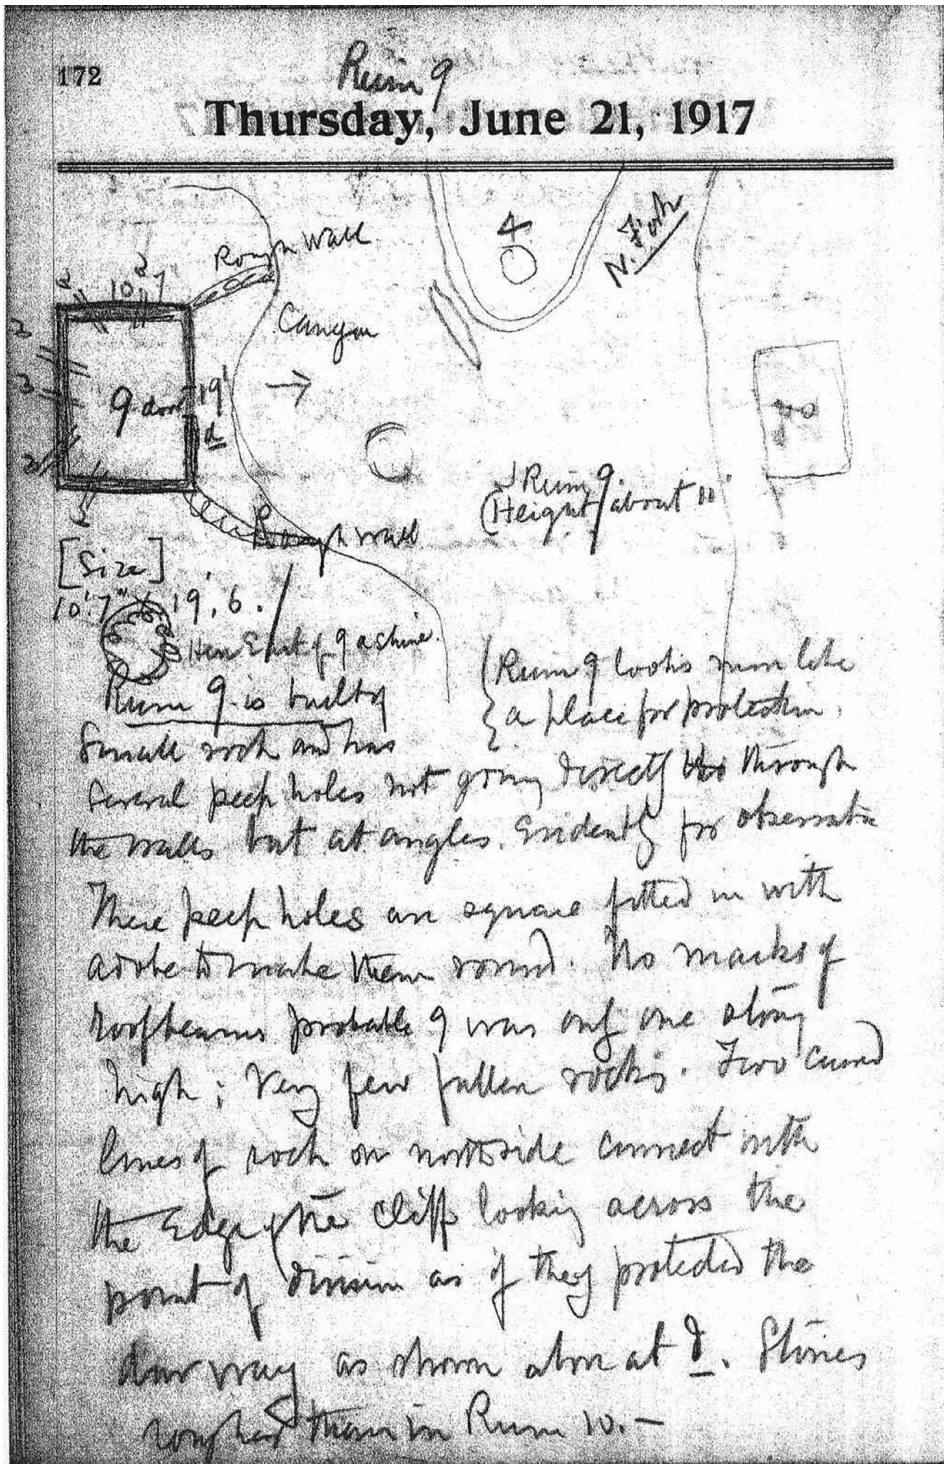 172
Ruin 9
Thursday, June 21, 1917
4
N. Fork
Rough Wall
2
2
10' 7"
2
3
3
2
Canyon
9 door 19'
d
Ruin 9.
Height about 11'
Rough wall
[Size]
10' 7" x 19', 6.
Here East of 9 a shrine.
Ruin 9 looks more like
a place for protection.
Ruin 9 is built of
Small rock and has
Several peep holes not going directly through
the walls but at angles. Evidently for observation
These peep holes are square fitted in with
adobe to make them round. No marks of
roof beams probable 9 was only one story
high; Very few fallen rocks. Two curved
lines of rock on north side connect with
the Edge of the Cliff looking across the
point of division as if they protected the
doorway as shown above at d. Stones
rougher than in Ruin 10. —